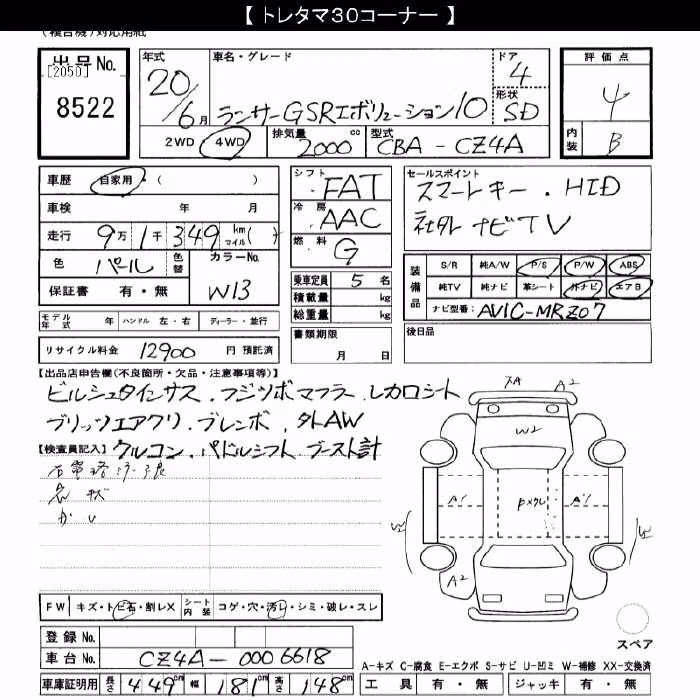 【 トレタマ30コーナー 】
出品No.
[2050]
8522
年式
20/6月
車名・グレード
ランサーGSRエボリューション10
ドア
4
形状
SD
2WD 4WD
排気量
2000 cc
型式
CBA-CZ4A
評価点
4
内装
B
車歴 自家用・( )
車検 年 月
走行 9万1千349 km マイル( )
色 パール 色替 カラーNo. W13
保証書 有・無
モデル年式 年 ハンドル 左・右 ディーラー・並行
リサイクル料金 12900 円 預託済
シフト FAT
冷房 AAC
燃料 G
乗車定員 5 名
積載量 kg
総重量 kg
書類期限
月 日
セールスポイント
スマートキー・HID
社外ナビTV
装備品
S/R 純A/W P/S P/W ABS
純TV 純ナビ 革シート 外ナビ エアB
ナビ型番: AVIC-MRZ07
後日品
【出品店申告欄(不良箇所・欠品・注意事項等)】
ビルシュタインサス.フジツボマフラー.レカロシート
ブリッツエアクリ.ブレンボ.外AW
【検査員記入】クルコン.パドルシフト.ブースト計
7A A2
W2
A1 Pメクレ A1
W2 W2
A2 A2
FW キズ・トビ石・割レX シート内装 コゲ・穴・汚レ・シミ・破レ・スレ
スペア
登録 No.
車台 No. CZ4A-0006618
A-キズ C-腐食 E-エクボ S-サビ U-凹ミ W-補修 XX-交換済
車庫証明用 長さ 449cm 幅 181cm 高さ 148cm
工具 有・無 ジャッキ 有・無